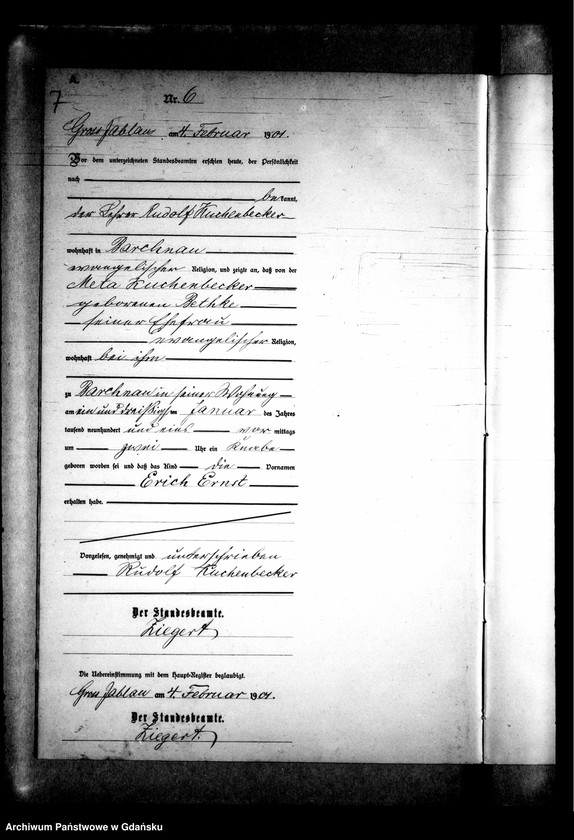 A.
7
Nr. 6
Gross Jablau am 4. Februar 1901.
Vor dem unterzeichneten Standesbeamten erschien heute, der Persönlichkeit
nach
bekannt,
der Lehrer Rudolf Kuchenbecker
wohnhaft in Barchnau
evangelischer Religion, und zeigte an, daß von der
Meta Kuchenbecker
geborenen Bethke
seiner Ehefrau
evangelischer Religion,
wohnhaft bei ihm
zu Barchnau in seiner Wohnung
am ein und dreißigsten Januar des Jahres
tausend neunhundert und eins vor mittags
um zwei Uhr ein Knabe
geboren worden sei und daß das Kind die Vornamen
Erich Ernst
erhalten habe.
Vorgelesen, genehmigt und unterschrieben
Rudolf Kuchenbecker
Der Standesbeamte.
Ziegert
Die Uebereinstimmung mit dem Haupt-Register beglaubigt.
Gross Jablau am 4. Februar 1901.
Der Standesbeamte.
Ziegert.
Archiwum Państwowe w Gdańsku